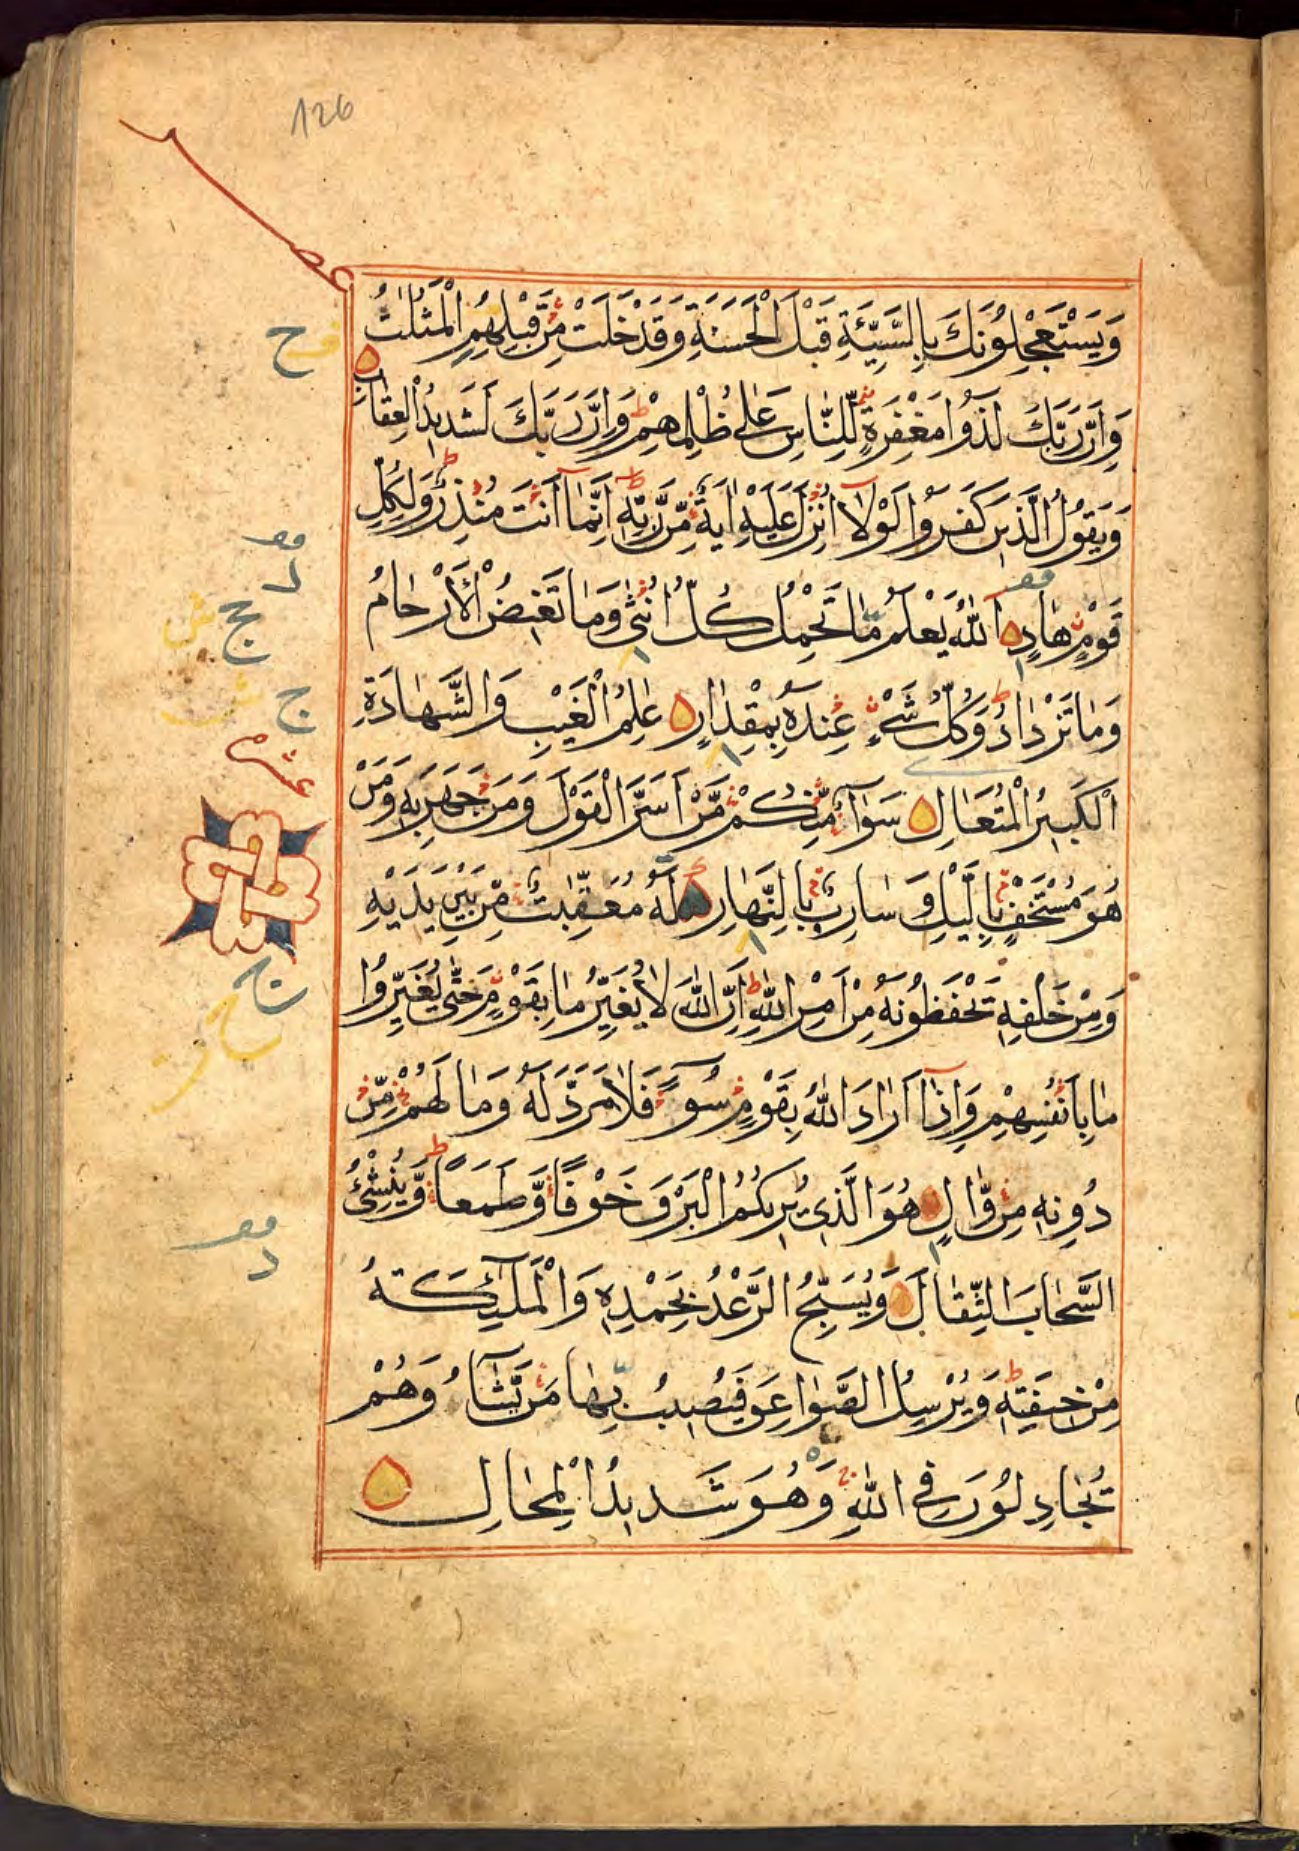 126
وَيَسْتَعْجِلُونَكَ بِالسَّيِّئَةِ قَبْلَ الْحَسَنَةِ وَقَدْ خَلَتْ مِنْ قَبْلِهِمِ الْمَثُلٰتُ
وَاِنَّ رَبَّكَ لَذُوا مَغْفِرَةٍ لِلنَّاسِ عَلٰى ظُلْمِهِمْ وَاِنَّ رَبَّكَ لَشَدِيدُ الْعِقَابِ
وَيَقُولُ الَّذِينَ كَفَرُوا لَوْلَآ اُنْزِلَ عَلَيْهِ اٰيَةٌ مِّنْ رَبِّهٖ اِنَّمَآ اَنْتَ مُنْذِرٌ وَلِكُلِّ
قَوْمٍ هَادٍ اَللّٰهُ يَعْلَمُ مَا تَحْمِلُ كُلُّ اُنْثٰى وَمَا تَغِيضُ الْاَرْحَامُ
وَمَا تَزْدَادُ وَكُلُّ شَىْءٍ عِنْدَهُ بِمِقْدَارٍ عٰلِمُ الْغَيْبِ وَالشَّهَادَةِ
اَلْكَبِيرُ الْمُتَعَالِ سَوَآءٌ مِّنْكُمْ مَّنْ اَسَرَّ الْقَوْلَ وَمَنْ جَهَرَ بِهٖ وَمَنْ
هُوَ مُسْتَخْفٍ بِالَّيْلِ وَسَارِبٌ بِالنَّهَارِ لَهُ مُعَقِّبٰتٌ مِّنْ بَيْنِ يَدَيْهِ
وَمِنْ خَلْفِهٖ يَحْفَظُونَهُ مِنْ اَمْرِ اللّٰهِ اِنَّ اللّٰهَ لَا يُغَيِّرُ مَا بِقَوْمٍ حَتّٰى يُغَيِّرُوا
مَا بِاَنْفُسِهِمْ وَاِذَآ اَرَادَ اللّٰهُ بِقَوْمٍ سُوٓءًا فَلَا مَرَدَّ لَهُ وَمَا لَهُمْ مِّنْ
دُونِهٖ مِنْ وَّالٍ هُوَ الَّذِى يُرِيكُمُ الْبَرْقَ خَوْفًا وَّطَمَعًا وَّيُنْشِئُ
السَّحَابَ الثِّقَالَ وَيُسَبِّحُ الرَّعْدُ بِحَمْدِهٖ وَالْمَلٰٓئِكَةُ
مِنْ خِيفَتِهٖ وَيُرْسِلُ الصَّوَاعِقَ فَيُصِيبُ بِهَا مَنْ يَّشَآءُ وَهُمْ
يُجَادِلُونَ فِى اللّٰهِ وَهُوَ شَدِيدُ الْمِحَالِ